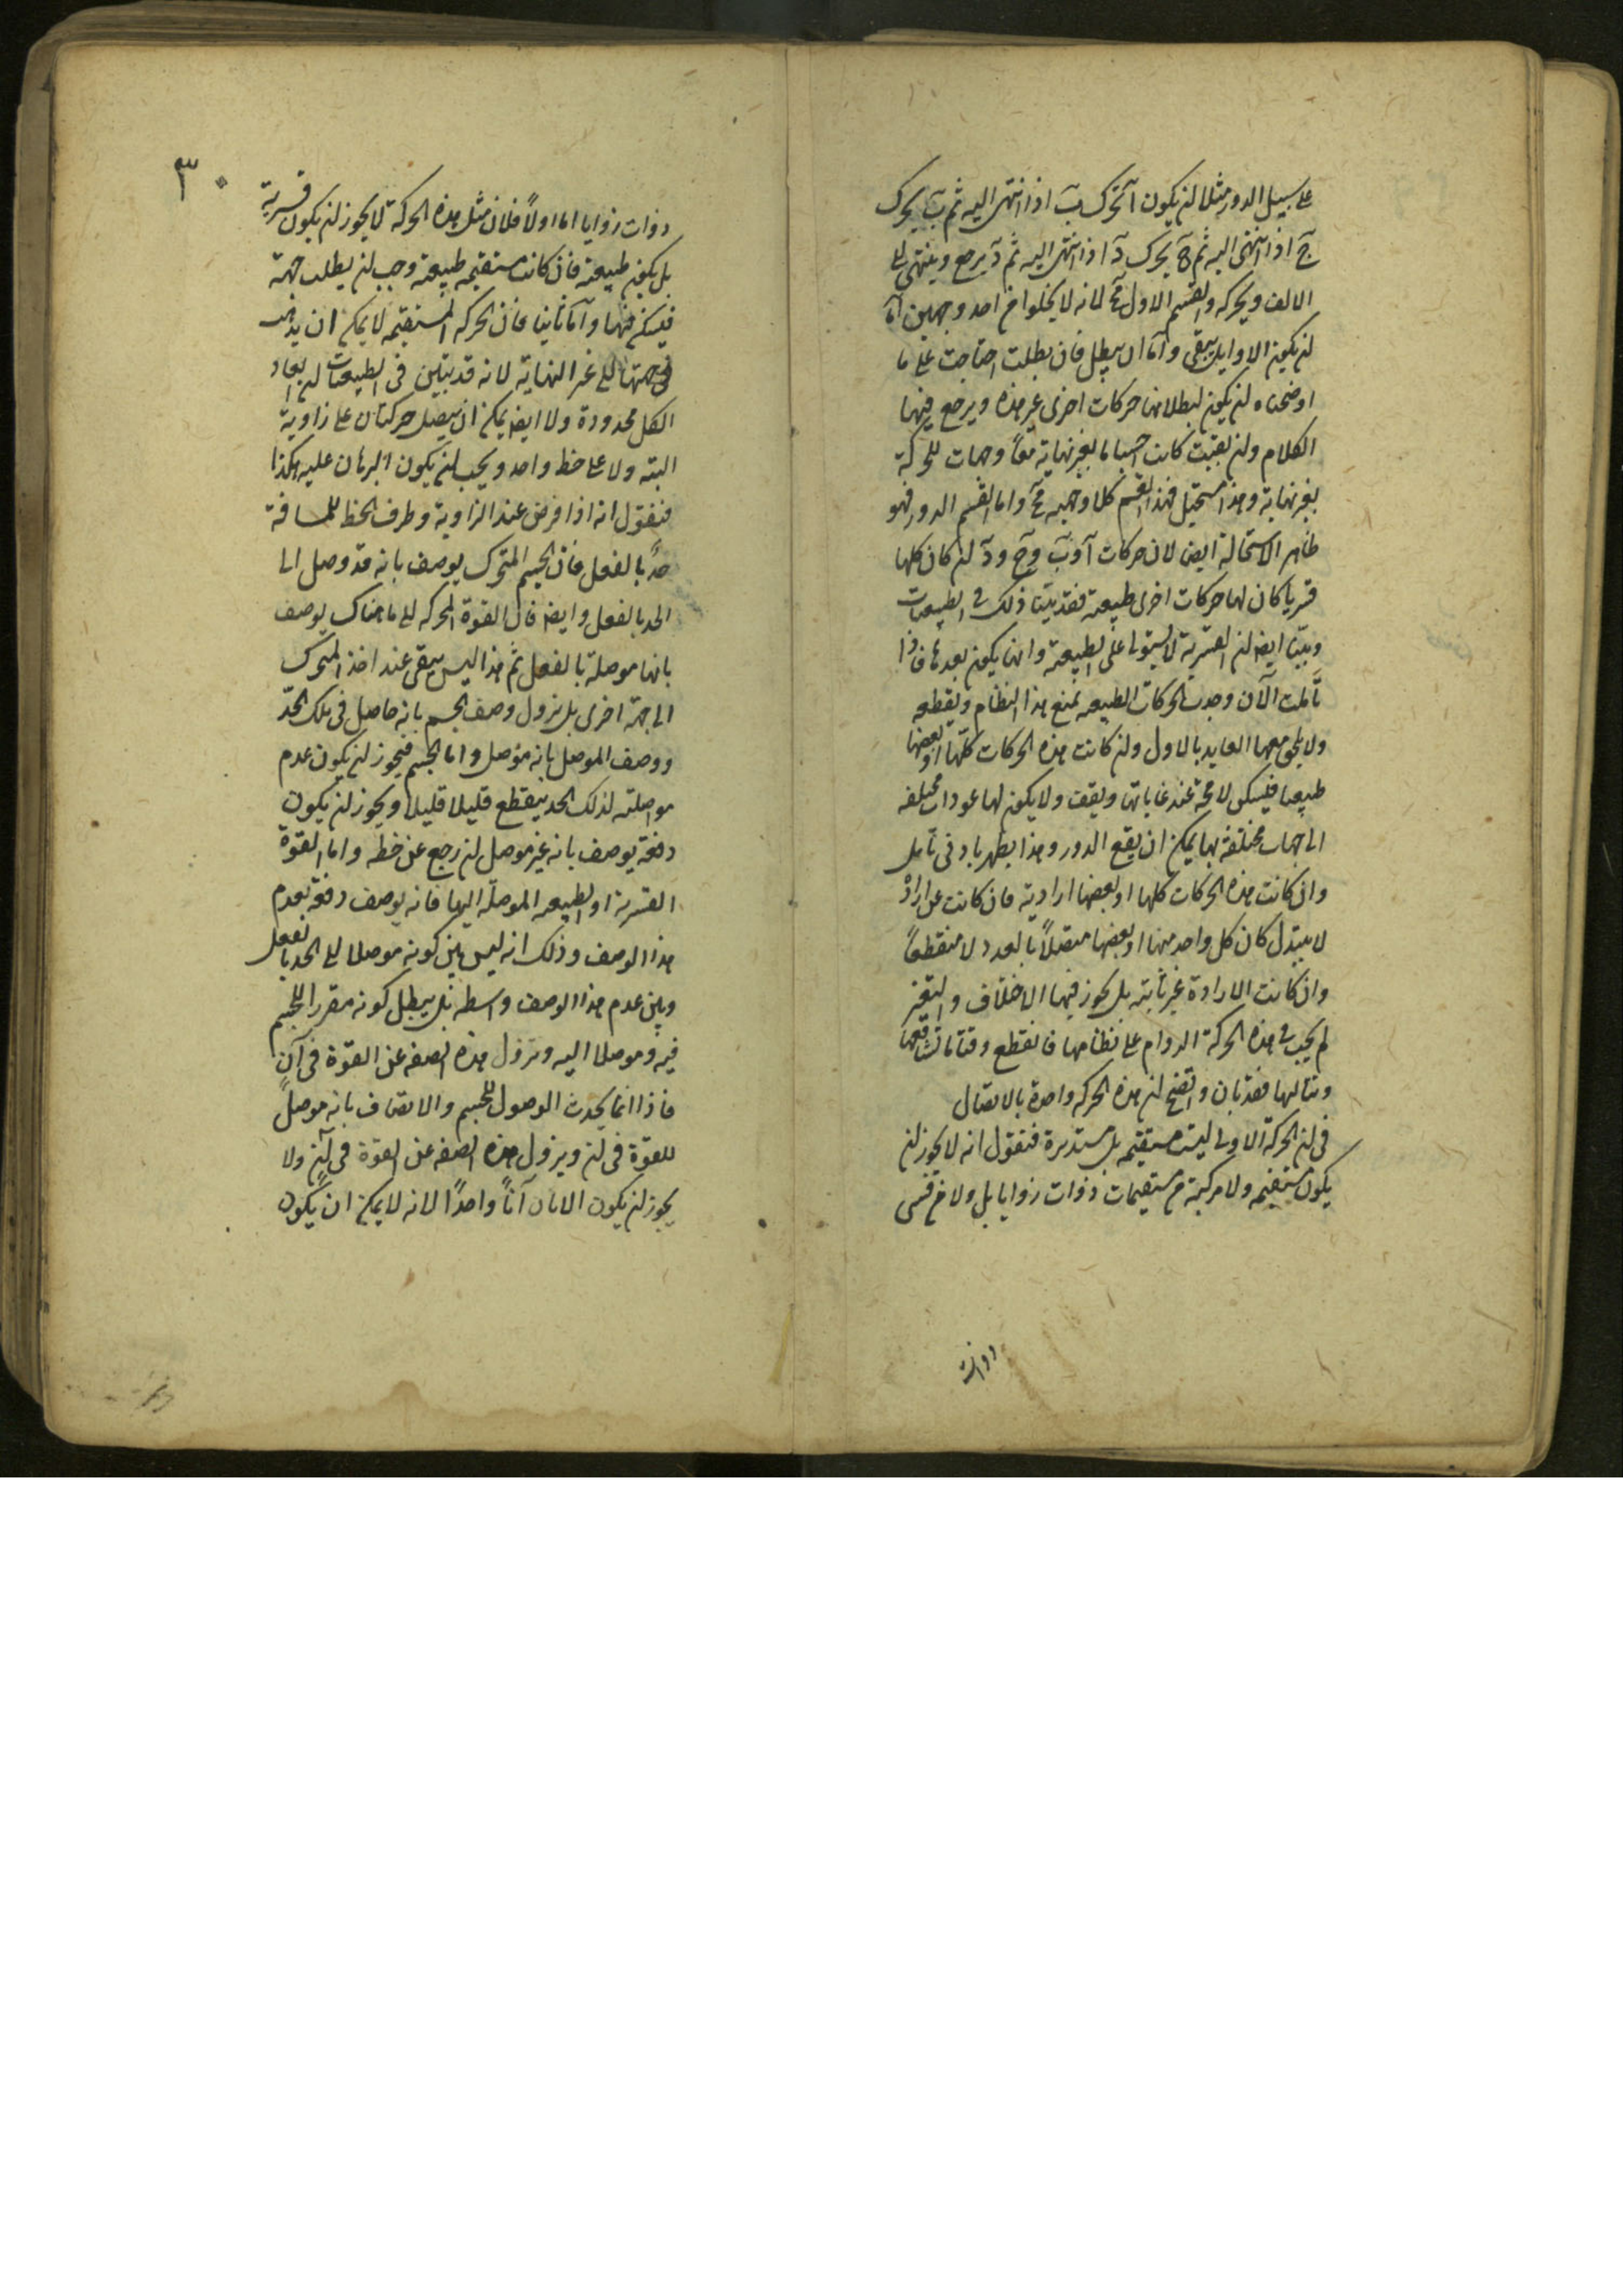 على سبيل الدور مثلا ان يكون آ تحرك ب اذا انتهى اليه ثم ب يحرك
ج اذا انتهى اليه ثم ج يحرك د اذا انتهى اليه ثم د يرجع وينتهى الى
الالف ويحركه والقسم الاول مح لانه لا يخلوا من احد وجهين اما
ان يكون الاوايل يبقى واما ان يبطل فان بطلت احتاجت على ما
اوضحناه ان يكون لبطلانها حركات اخرى غير هذه ويرجع فيها
الكلام وان بقيت كانت اجساما بغير نهاية معا وجهات للحركة
بغير نهاية وهذا مستحيل فهذا القسم كلا وجهيه مح واما القسم الدور فهو
ظاهر الاستحالة ايضا لان حركات آ و ب و ج و د ان كان كلها
قسريا كان لها حركات اخرى طبيعية فقد بينا ذلك فى الطبيعيات
وبينا ايضا ان القسرية لا يستولى على الطبيعية وانها يكون بعدها فاذا
تأملت الآن وجدت الحركات الطبيعية تمنع هذا النظام ويقطعه
ولا يلحق معها العايد بالاول وان كانت هذه الحركات كلها او بعضها
طبيعيا فليسكن لا محة عند غاياتها ويقف ولا يكون لها عودات مختلفه
الى جهات مختلفة بها يمكن ان يقع الدور وهذا يظهر بادنى تأمل
وان كانت هذه الحركات كلها او بعضها ارادية فان كانت عن ارادة
لا يتبدل كان كل واحد منها او بعضها متصلاً بالعدد لا منقطعاً
وان كانت الارادة غير ثابته بل يجوز فيها الاختلاف والتغير
لم يجب فى هذه الحركة الدوام على نظامها فانقطع وقتا ما تشافعها
وتتاليها فقد بان واتضح ان هذه الحركه واحدة بالاتصال
فى ان الحركة الاولى ليست مستقيمه بل مستديرة فنقول انه لا يجوز ان
يكون مستقيمه ولا مركبة من مستقيمات ذوات زوايا بل ولا من قسى
ذوات
٣٠
ذوات زوايا اما اولاً فلان مثل هذه الحركة لا يجوز ان يكون قسرية
بل يكون طبيعية فان كانت مستقيمه طبيعية وجب ان يطلب جهة
فيسكن فيها واما ثانيا فان الحركه المستقيمه لا يمكن ان يذهب
فى جهتها الى غير النهاية لانه قد تبين فى الطبيعيات ان ابعاد
الكل محدودة ولا ايضا يمكن ان يتصل حركتان على زاوية
البته ولا على خط واحد ويجب ان يكون البرهان عليه هكذا
فنقول انه اذا فرض عند الزاوية وطرف الخط للمسافة
حدً بالفعل فان الجسم المتحرك يوصف بانه قد وصل الى
الحد بالفعل وايضا فان القوة المحركه الى ما هناك يوصف
بانها موصلة بالفعل ثم هذا ليس يبقى عند اخذ المتحرك
الى جهة اخرى بل يزول وصف الجسم بانه حاصل فى تلك الحدّ
ووصف الموصل بانه موصل واما الجسم فيجوز ان يكون عدم
مواصلته لذلك الحد ينقطع قليلا قليلا ويجوز ان يكون
دفعة يوصف بانه غير موصل ان رجع عن خطه واما القوة
القسرية او الطبيعيه الموصلة اليها فانه يوصف دفعه بعدم
هذا الوصف وذلك انه ليس بين كونه موصلا الى الحد بالفعل
وبين عدم هذا الوصف واسطه بل يبطل كونه مقررا للجسم
فيه وموصلا اليه وتزول هذه الصفه عن القوّة فى آن
فاذا انما يحدث الوصول للجسم والاتصاف بانه موصلً
للقوّة فى آن ويزول هذه الصفه عن القوّة فى آن ولا
يجوز ان يكون الآنان آناً واحداً لانه لا يمكن ان يكون